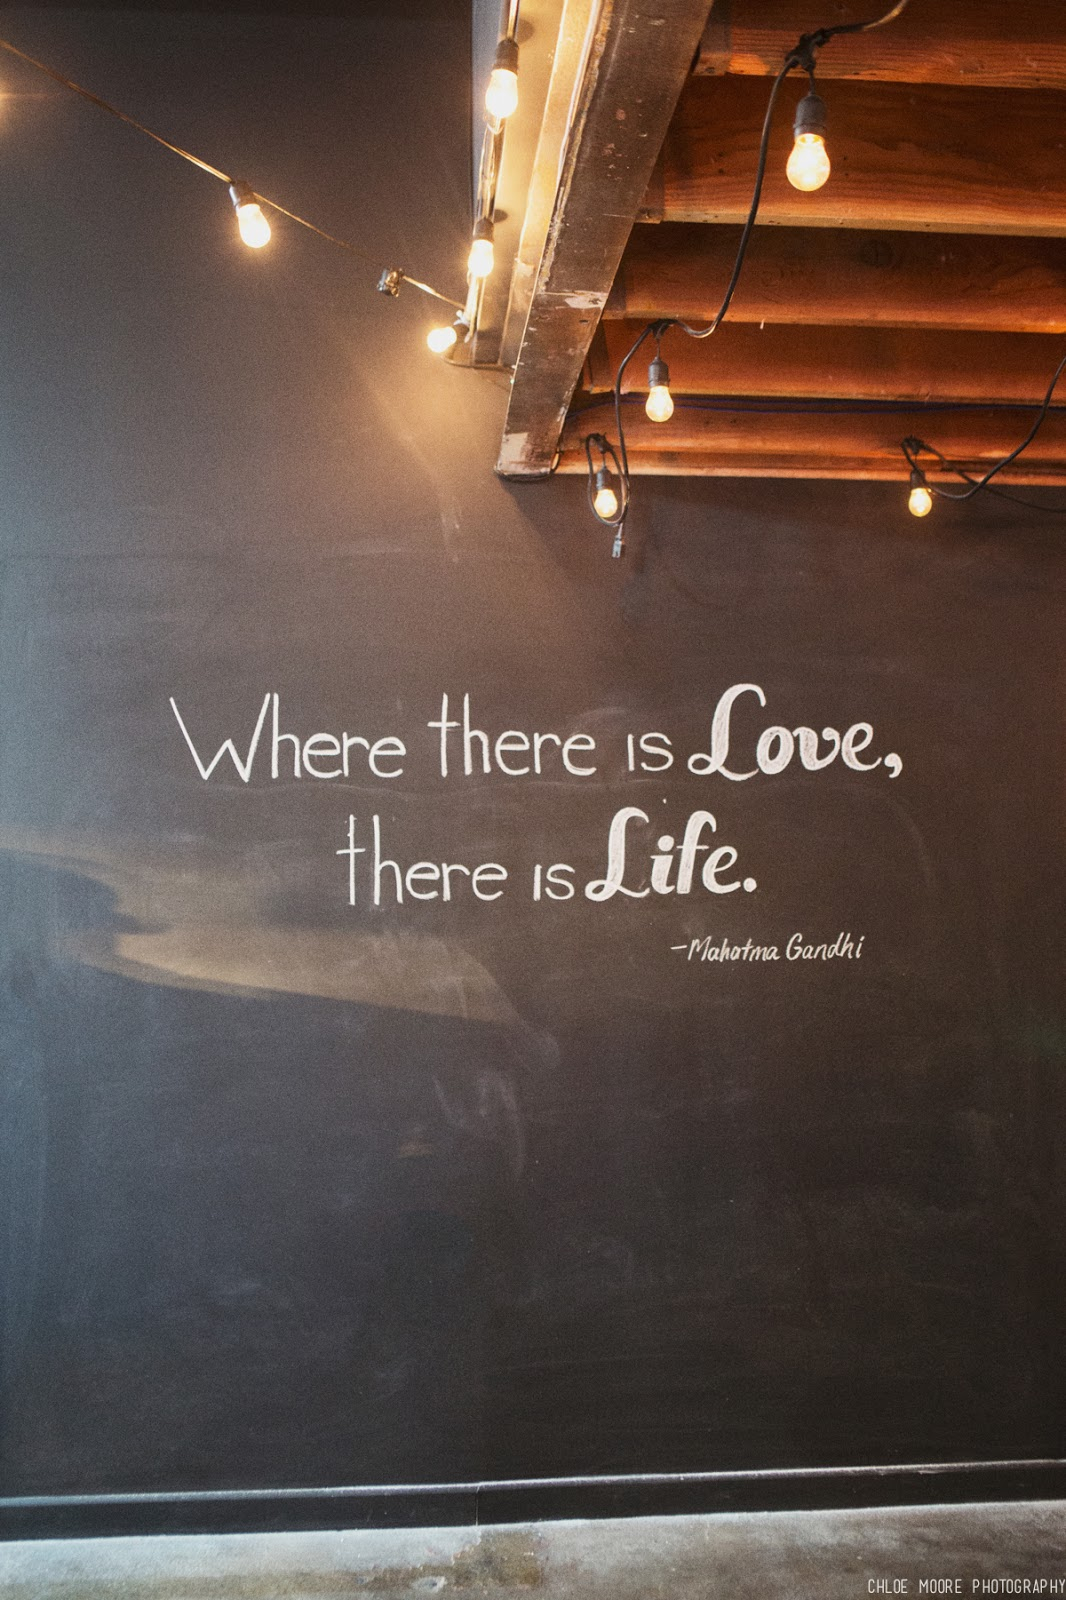 Where there is Love,
there is Life.
-Mahatma Gandhi
CHLOE MOORE PHOTOGRAPHY